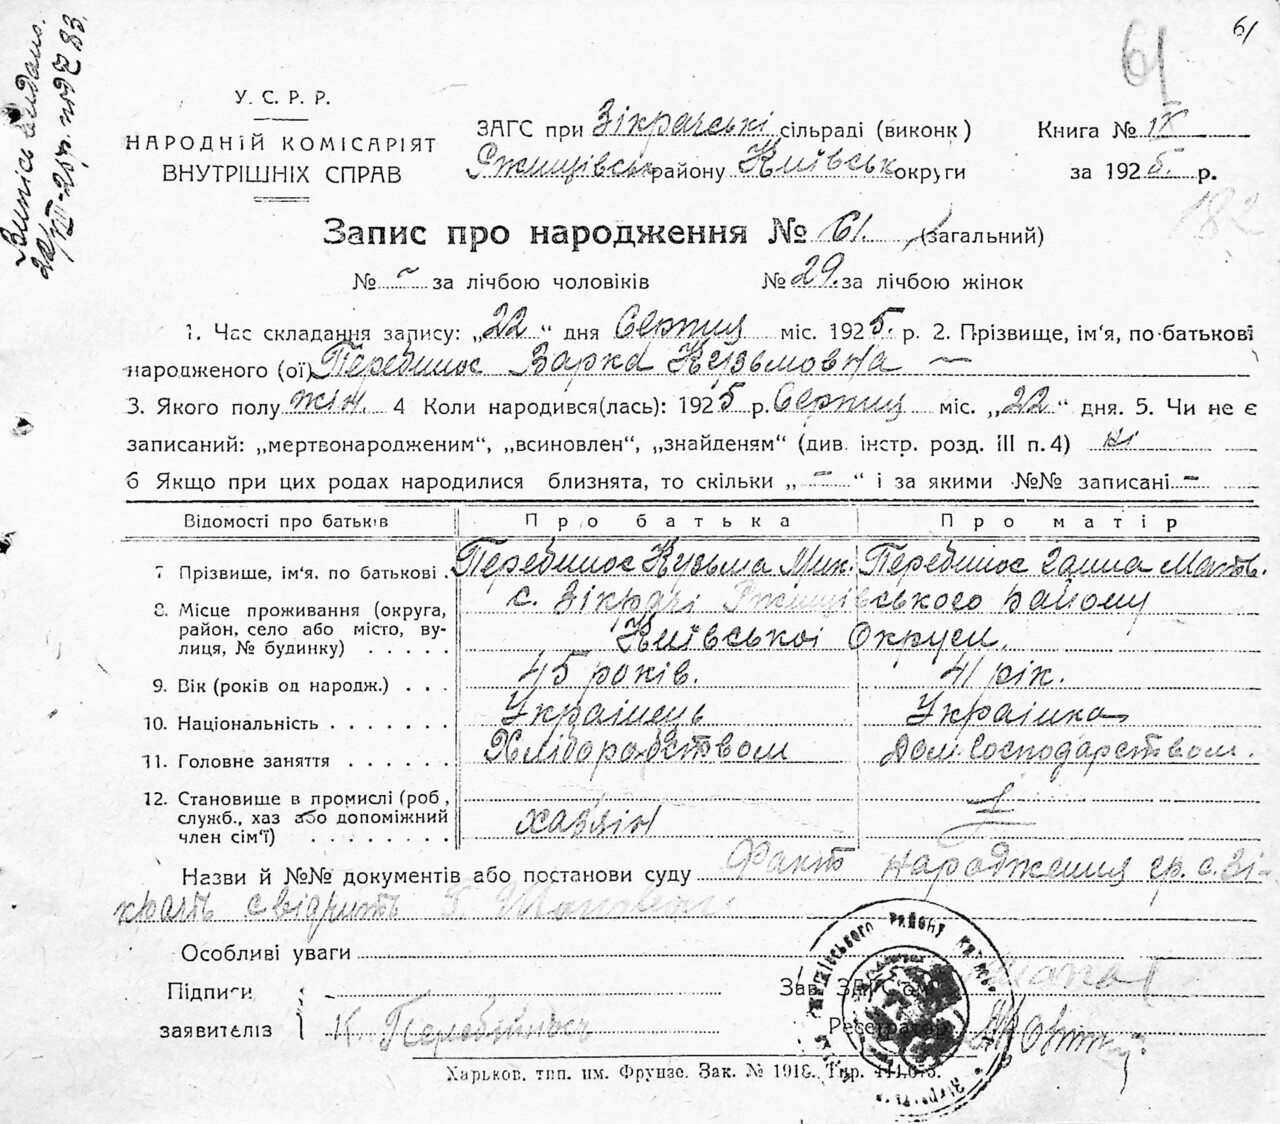 61
61
Випись видано.
22/VIII-25р. под Z 83.
У. С. Р. Р.
НАРОДНІЙ КОМІСАРІЯТ
ВНУТРІШНІХ СПРАВ
ЗАГС при Зікрачські сільраді (виконк)
Ржищівськ району Київськ округи
Книга № IX
за 1925. р.
182
Запис про народження № 61. (загальний)
№ – за лічбою чоловіків № 29. за лічбою жінок
1. Час складання запису: „22“ дня Серпня міс. 1925. р. 2. Прізвище, ім'я, по-батькові
народженого (ої) Перебинос Варка Кузьмовна —
3. Якого полу жін. 4 Коли народився(лась): 1925 р. Серпня міс. „22“ дня. 5. Чи не є
записаний: „мертвонародженим“, „всиновлен“, „знайденям“ (див. інстр. розд. III п. 4) ні
6 Якщо при цих родах народилися близнята, то скільки „–“ і за якими №№ записані –
Відомості про батьків Про батька Про матір
7 Прізвище, ім'я. по батькові . Перебинос Кузьма Мих. Перебинос Ганна Матв.
8. Місце проживання (округа, район, село або місто, ву-лиця, № будинку) . . . . . с. Зікрачі Ржищівського району
Київської Округи.
9. Вік (років од народж.) . . . 45 років. 41 рік.
10. Національність . . . . . . . Українець Українка
11. Головне заняття . . . . . . Хліборобством Дом. Господарством.
12. Становище в промислі (роб, служб., хаз або допоміжний член сім'ї) . . . . . . . . хазяїн
Назви й №№ документів або постанови суду Факт народження гр. с. Зі-
крачь свідчить Г.
Особливі уваги
Підписи
заявителів К Перебийнось
Зав. ЗАГСом
Реєстратор
Харьков, тип. им. Фрунзе. Зак. № 1918. Тир. 444.075.